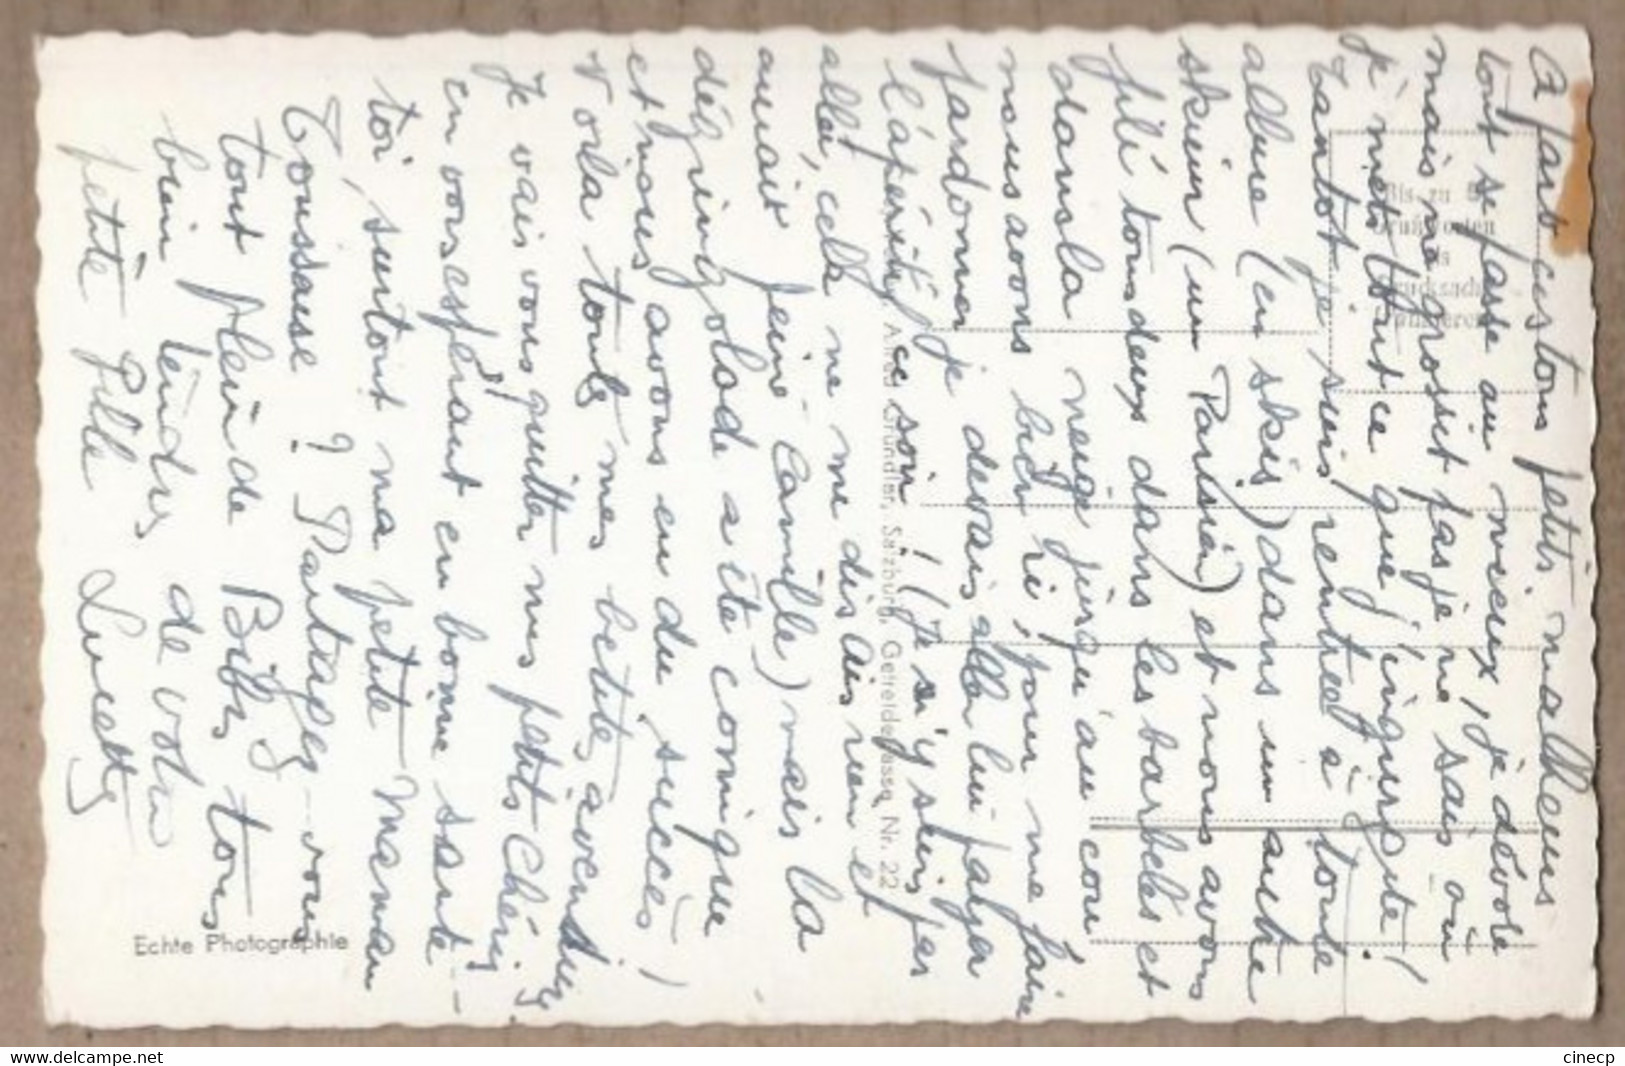 A part ces tous petits malheurs
tout se passe au mieux, je dévore
mais ne grossit pas je ne sais où
je mets tout ce que j'ingurgite !
Tantot je suis rentrée à toute
allure (en skis) dans un autre
skieur (un Parisien) et nous avons
filé tous deux dans les barbelés et
dans la neige jusqu'au cou
nous avons bien ri, pour me faire
pardonner je devais aller lui payer
l'apéritif ce soir ! (je n'y suis pas
allée, cela ne me disais rien et
aurait peiné Camille) mais la
dégringolade a été comique
et nous avons eu du succès !
Voila toutes mes betites aventures
Je vais vous quitter mes petits chéris
en vous espérant en bonne santé -
toi, surtout ma petite Maman
Tousses ? Partages-vous
tout plein de Bibis tous
bien tendres de votre
petite fille Lucette
Bis zu 5
Grußworten
als
Drucksache
Alfred Gründler, Salzburg, Getreidegasse Nr. 22
Echte Photographie
www.delcampe.net
cinecp